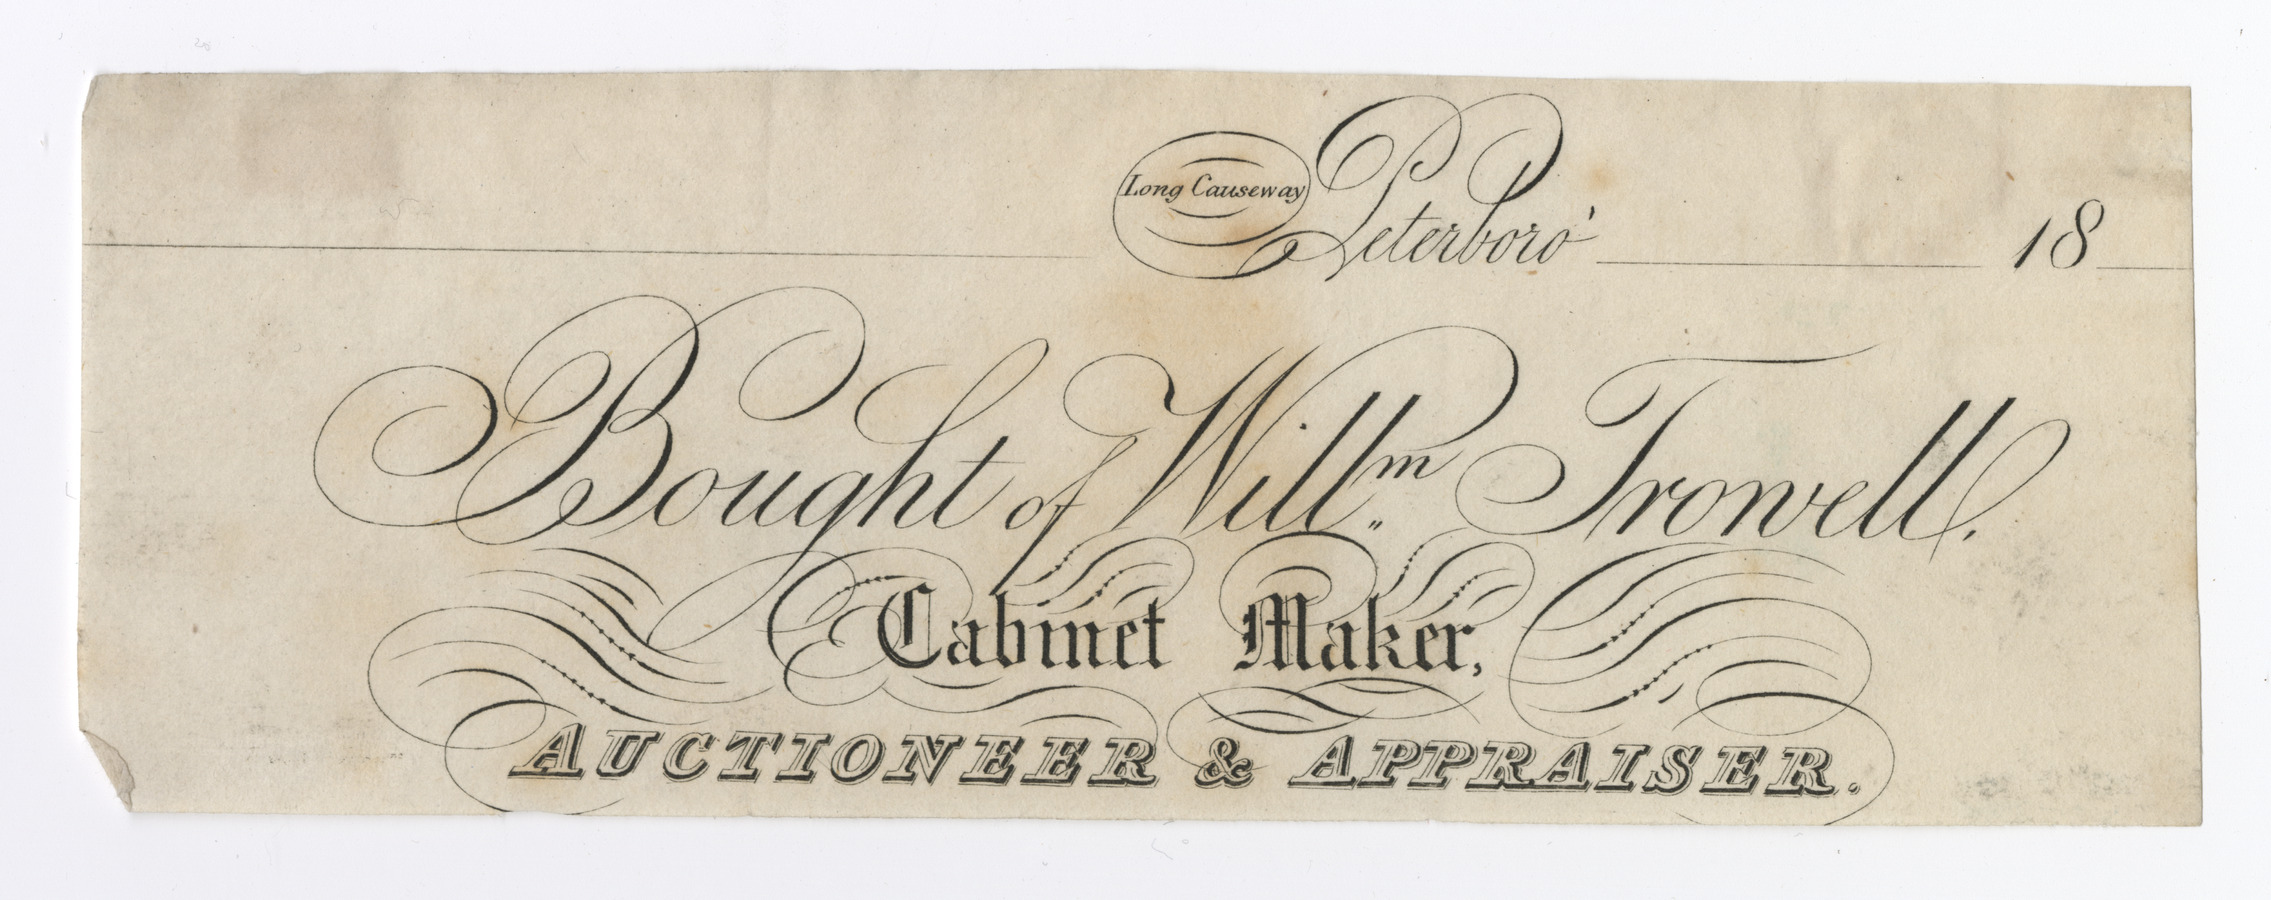 Long Causeway Peterboro' 18
Bought of Will.m Trowell.
Cabinet Maker,
AUCTIONEER & APPRAISER.